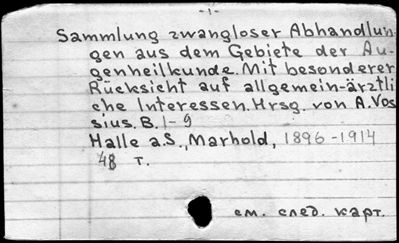 -1-
Sammlung zwangloser Abhandlun-
gen aus dem Gebiete der Au-
genheilkunde. Mit besonderer
Rücksicht auf allgemein-ärztli
che Interessen. Hrsg. von A. Vos
sius. B. 1-9
Halle a.S., Marhold, 1896-1914
48 т.
см. след. карт.